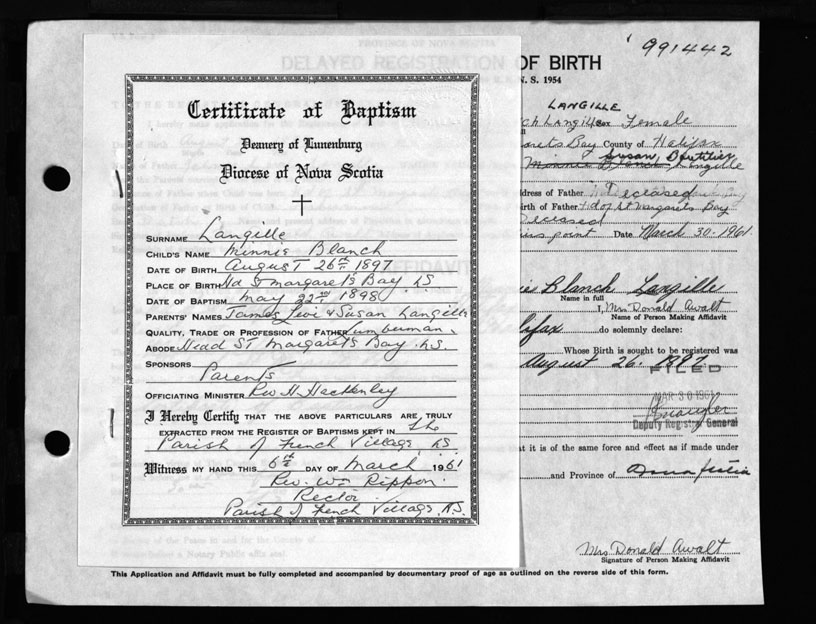 Certificate of Baptism
Deanery of Lunenburg
Diocese of Nova Scotia
SURNAME Langille
CHILD'S NAME Minnie Blanch
DATE OF BIRTH August 26th 1897
PLACE OF BIRTH Hd St Margaret's Bay N.S.
DATE OF BAPTISM May 22nd 1898
PARENTS' NAMES James Levi & Susan Langille
QUALITY, TRADE OR PROFESSION OF FATHER Lumberman
ABODE Head St Margaret's Bay N.S.
SPONSORS
Parents
OFFICIATING MINISTER Rev H. Hackenley
I Hereby Certify THAT THE ABOVE PARTICULARS ARE TRULY
EXTRACTED FROM THE REGISTER OF BAPTISMS KEPT IN the
Parish of French Village, N.S.
Witness MY HAND THIS 6th DAY OF March 1961
Rev. Wm Rippon
Rector
Parish of French Village, N.S.
991442
PROVINCE OF NOVA SCOTIA
DELAYED REGISTRATION OF BIRTH
N.S. 1954
LANGILLE
ch Langille Sex Female
arets Bay County of Halifax
Susan, Boutilier
Minnie Blanch Langille
ddress of Father Deceased
irth of Father Hd of St Margarets Bay
Deceased
ins point Date March 30. 1961.
ie Blanch Langille
Name in full
I, Mrs Donald Awalt
Name of Person Making Affidavit
lifax do solemnly declare:
Whose Birth is sought to be registered was
August 26. 1897
FILED
MAR 30 1961
Deputy Registrar General
that it is of the same force and effect as if made under
and Province of Nova Scotia
Mrs Donald Awalt
Signature of Person Making Affidavit
This Application and Affidavit must be fully completed and accompanied by documentary proof of age as outlined on the reverse side of this form.